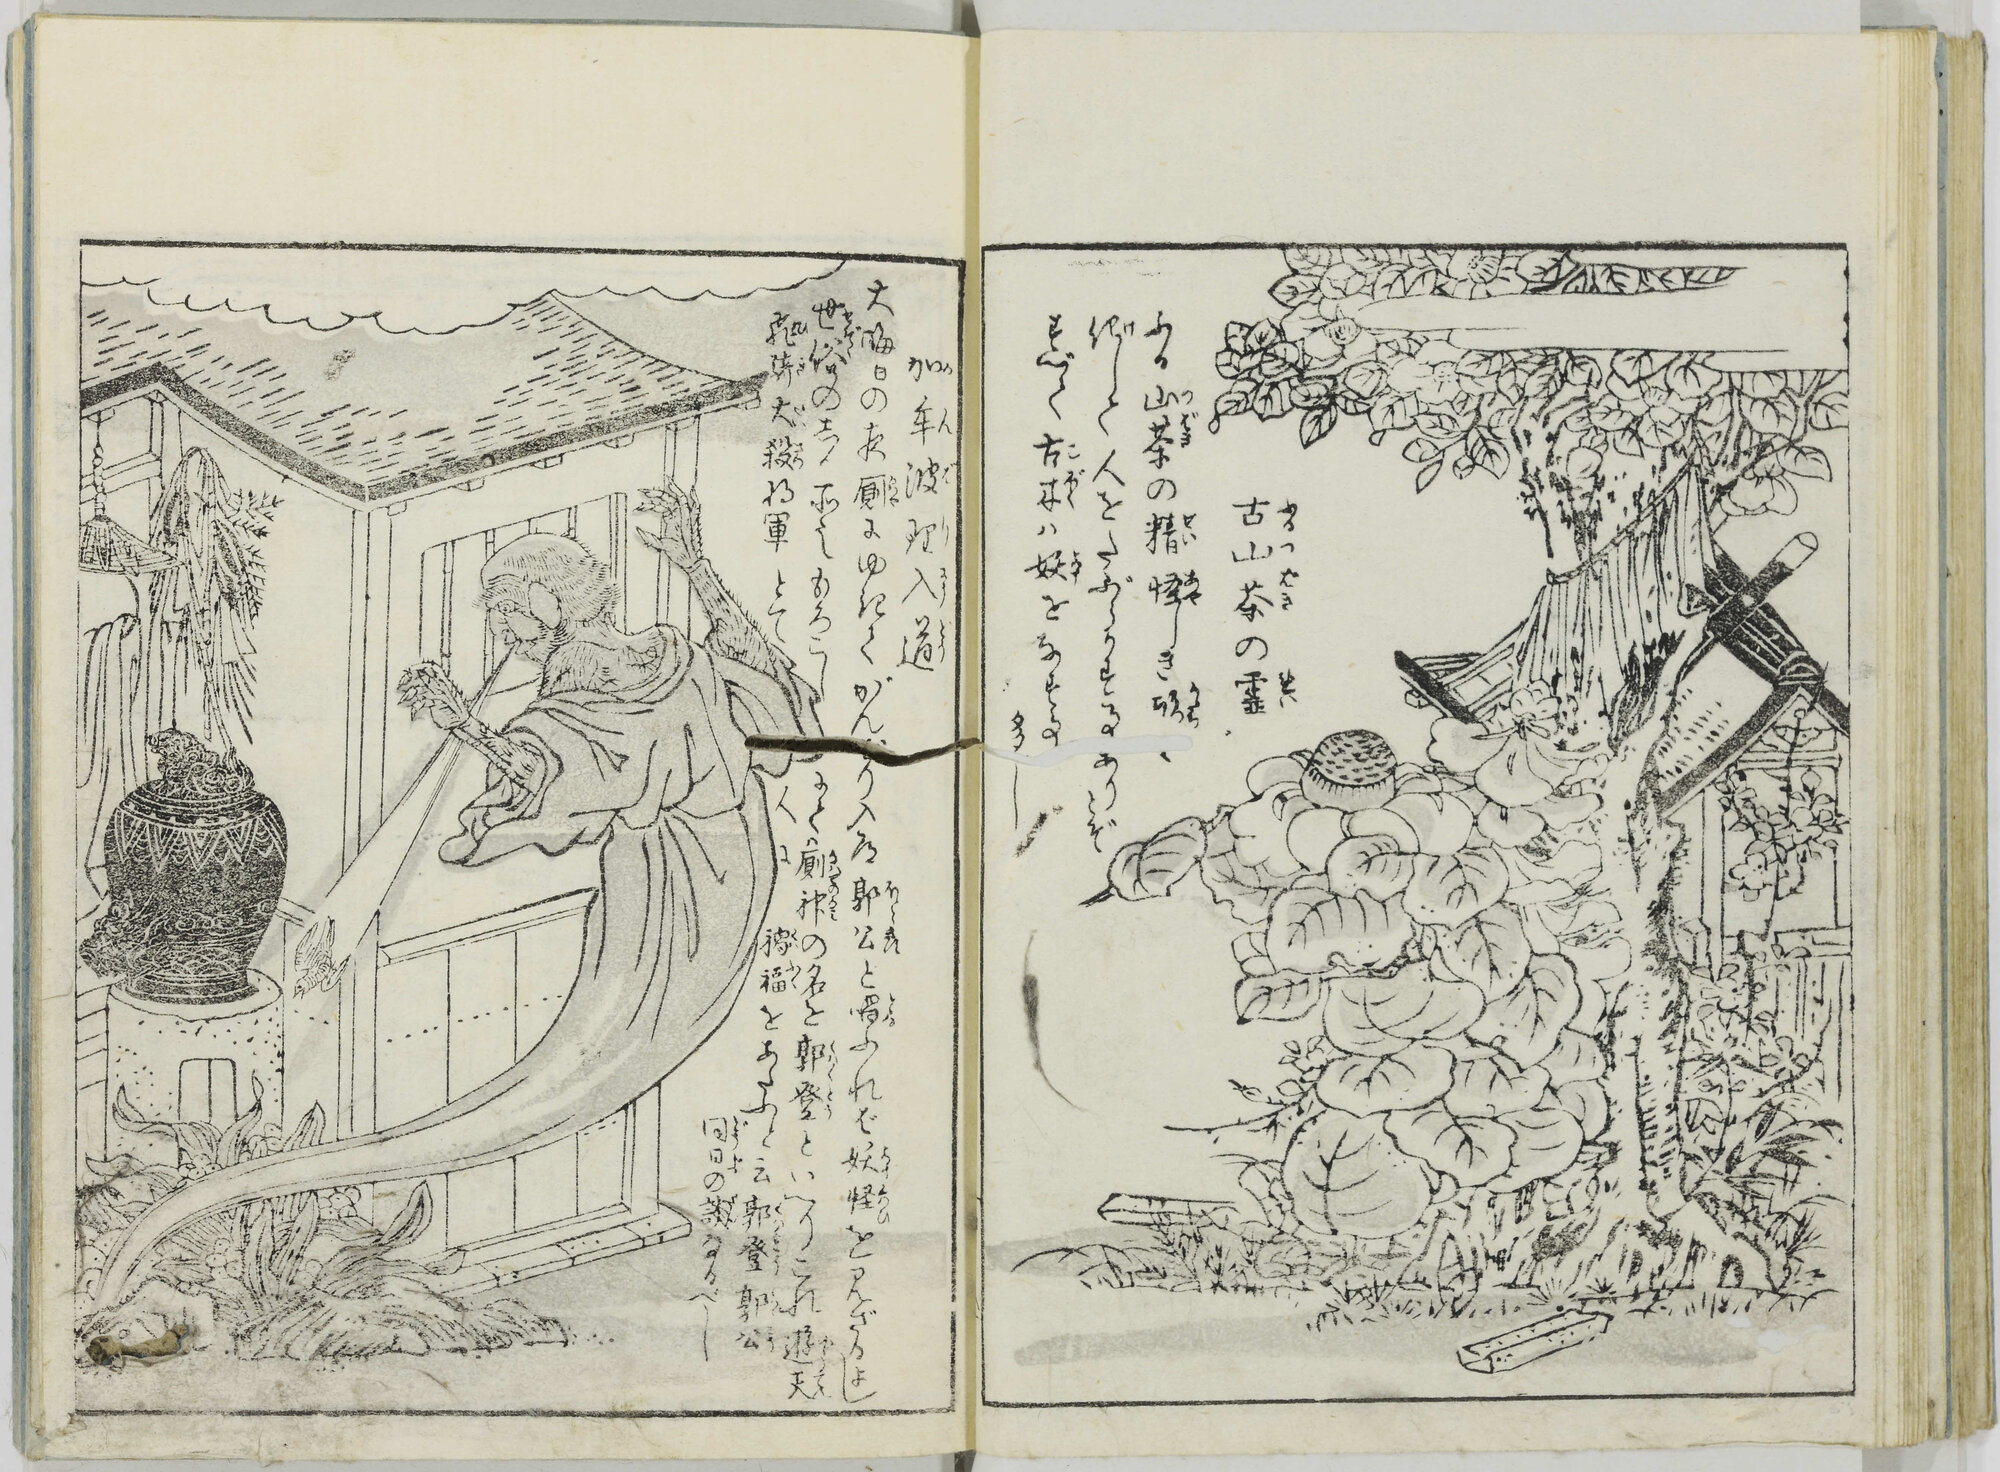 古山茶の霊
ふる山茶の精怪しき形と
化して人をたぶらかす事ありとぞ
すべて古木ハ妖をなす事
多し
加牟波理入道
大晦日の夜厠にゆきてがんばり入道郭公と唱ふれば妖怪を見ざるよし
世俗のしる所也もろこしにてハ厠神の名を郭登といへりこれ遊天
飛騎大殺将軍とて人に禍福をあたふと云郭登郭公
同日の談なるべし